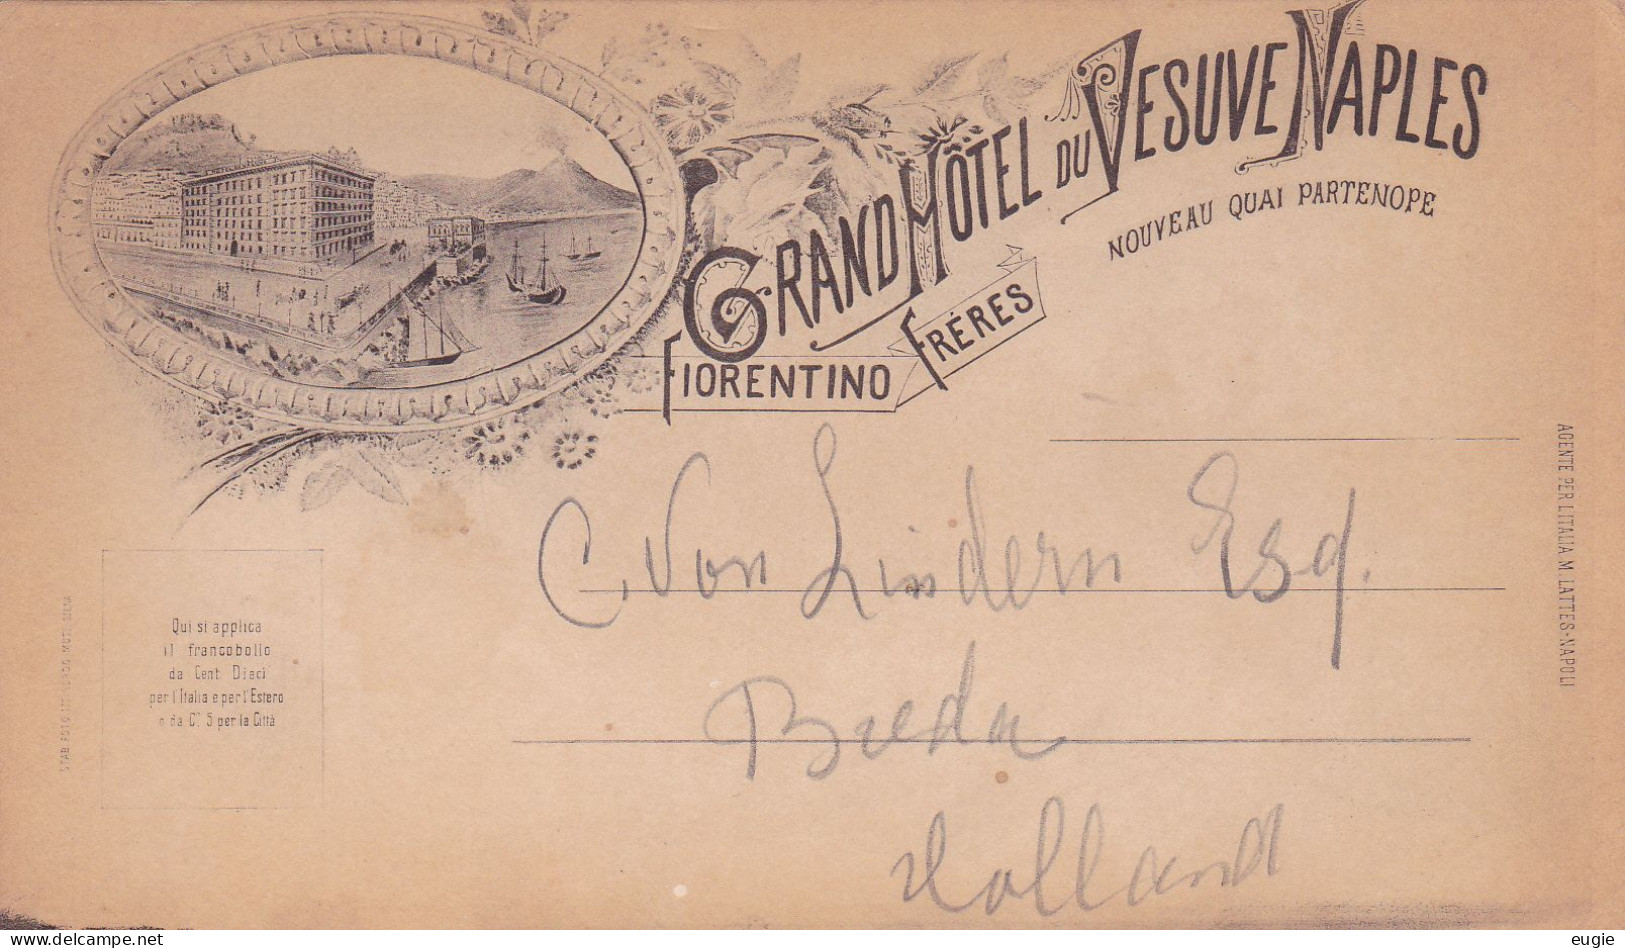 GRAND HÔTEL DU VESUVE NAPLES
NOUVEAU QUAI PARTENOPE
FIORENTINO FRÉRES
C. Von Lindern Esq.
Breda
Holland
Qui si applica
il francobollo
da Cent. Dieci
per l'Italia e per l'Estero
o da C. 5 per la Città
AGENTE PER L'ITALIA M. LATTES-NAPOLI
STAB. FOTO
delcampe.net
eugie